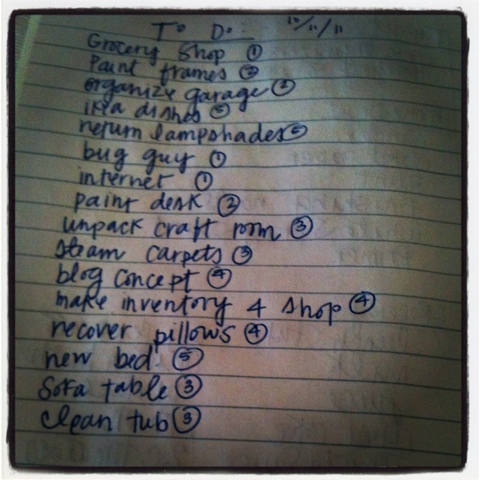 To Do: 10/11/11
Grocery Shop ①
Paint frames ②
organize garage ②
ikea dishes ⑤
return lampshades ⑤
bug guy ①
internet ①
paint desk ②
unpack craft room ③
steam carpets ③
blog concept ④
make inventory 4 shop ④
recover pillows ④
new bed ⑤
Sofa table ③
Clean tub ③